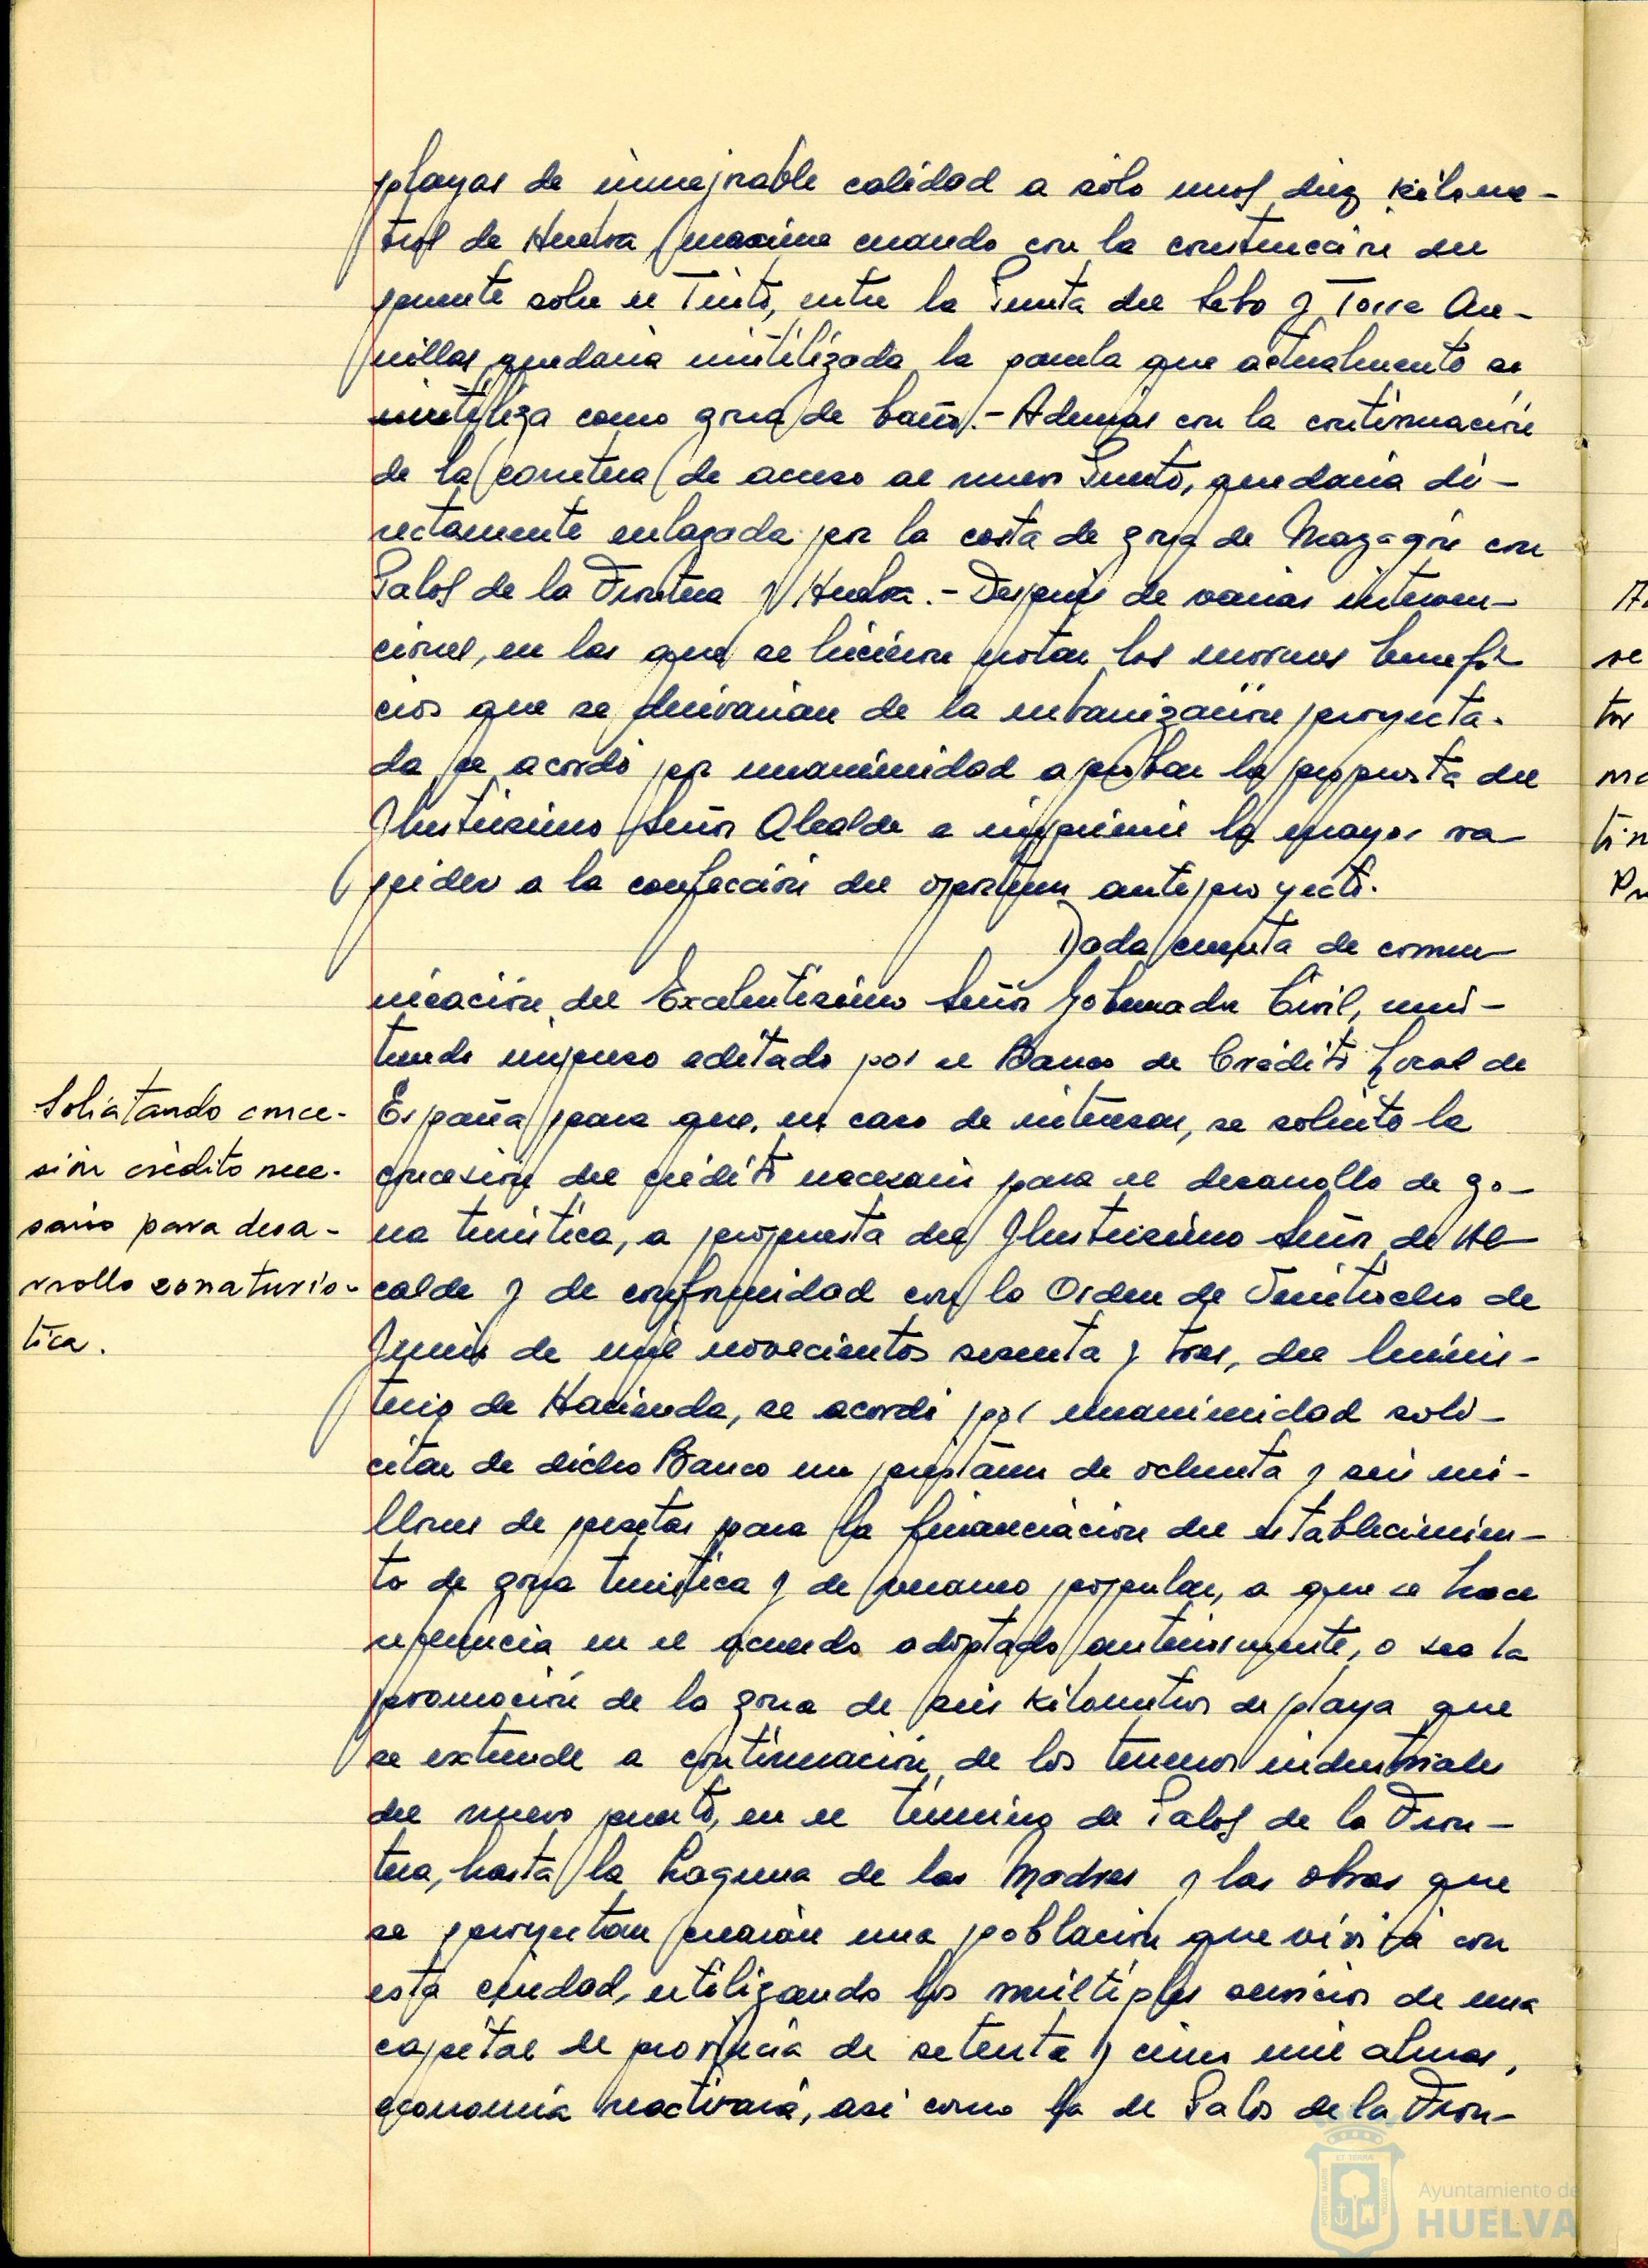 playas de inmejorable calidad a sólo unos diez kilóme-
tros de Huelva máxime cuando con la construcción del
puente sobre el Tinto, entre la Punta del Sebo y Torre Are-
nillas quedaría inutilizada la parcela que actualmente se
utiliza como zona de baño.- Además con la continuación
de la carretera de acceso al nuevo Puerto, quedaría di-
rectamente enlazada por la costa de zona de Mazagón con
Palos de la Frontera y Huelva.- Después de varias interven-
ciones, en las que se hicieron notar los enormes benefi-
cios que se derivarían de la urbanización proyecta-
da se acordó por unanimidad aprobar la propuesta del
Ilustrísimo Señor Alcalde e imprimir la mayor ra-
pidez a la confección del oportuno anteproyecto.
Dada cuenta de comu-
nicación del Excelentísimo Señor Gobernador Civil, remi-
tiendo impreso editado por el Banco de Crédito Local de
España para que, en caso de interesar, se solicite la
concesión del crédito necesario para el desarrollo de zo-
na turística, a propuesta del Ilustrísimo Señor de Al-
calde y de conformidad con la Orden de Veintiocho de
Junio de mil novecientos sesenta y tres, del Minis-
terio de Hacienda, se acordó por unanimidad soli-
citar de dicho Banco un préstamo de ochenta y seis mi-
llones de pesetas para la financiación del establecimien-
to de zona turística y de veraneo popular, a que se hace
referencia en el acuerdo adoptado anteriormente, o sea la
promoción de la zona de seis kilómetros de playa que
se extiende a continuación de los terrenos industriales
del nuevo puerto, en el término de Palos de la Fron-
tera, hasta la Laguna de las Madres y las obras que
se proyectan crearán una población que vivirá con
esta ciudad, utilizando los múltiples servicios de una
capital de provincia de setenta y cinco mil almas,
economía reactivará, así como la de Palos de la Fron-
Solicitando conce-
sión crédito nece-
sario para desa-
rrollo zona turís-
tica.
se
Ayuntamiento de
HUELVA